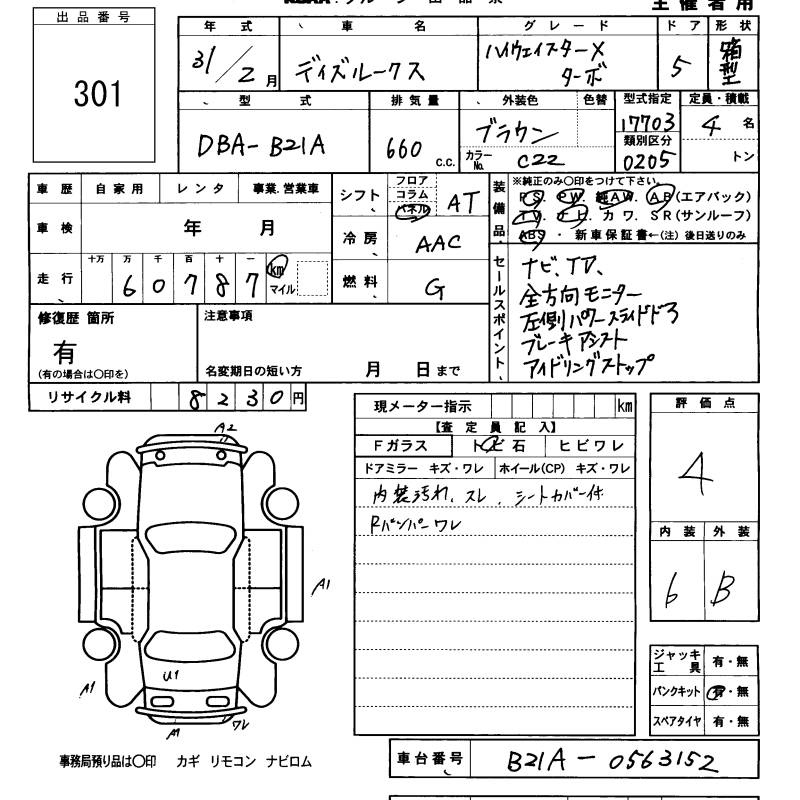 主催者用
出品番号
301
年式 車名 グレード ドア 形状
31/2月 デイズルークス ハイウェイスターX ターボ 5 箱型
型式 排気量 外装色 色替 型式指定 定員・積載
DBA-B21A 660 c.c. ブラウン 17703 4名
カラーNo. C22 類別区分 0205 トン
車歴 自家用 レンタ 事業.営業車
車検 年 月
走行 十万 万 千 百 十 一
60787 km マイル
シフト フロア コラム パネル AT
冷房 AAC
燃料 G
装備品 ※純正のみ○印をつけて下さい。
PS. PW. 純AW. AB(エアバック)
TV. ナビ. カワ. SR(サンルーフ)
ABS・新車保証書←(注)後日送りのみ
セールスポイント
ナビ、TV、
全方向モニター
左側パワースライドドア
ブレーキアシスト
アイドリングストップ
修復歴 箇所
有
(有の場合は○印を)
注意事項
名変期日の短い方 月 日まで
リサイクル料 8230円
現メーター指示 km
【査定員記入】
Fガラス トビ石 ヒビワレ
ドアミラー キズ・ワレ ホイール(CP) キズ・ワレ
内装汚れ、スレ、シートカバー付
Rバンパーワレ
評価点
4
内装 外装
6 B
ジャッキ工具 有・無
パンクキット 有・無
スペアタイヤ 有・無
A2
A1
A1
U1
A1
ワレ
事務局預り品は○印 カギ リモコン ナビロム
車台番号 B21A-0563152